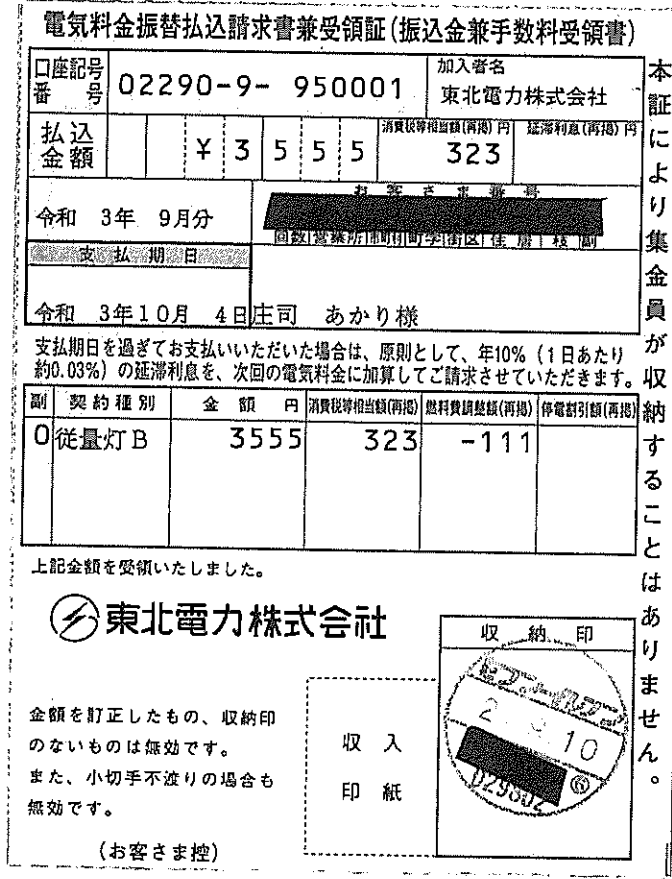 電気料金振替払込請求書兼受領証(振込金兼手数料受領書)
口座記号番号 02290-9- 950001
加入者名
東北電力株式会社
払込金額 ¥3555
消費税等相当額(再掲) 円
323
延滞利息(再掲) 円
お客さま番号
令和 3年 9月分
支払期日
令和 3年10月 4日
庄司 あかり様
支払期日を過ぎてお支払いいただいた場合は、原則として、年10% (1日あたり
約0.03%) の延滞利息を、次回の電気料金に加算してご請求させていただきます。
副 契約種別 金額 円 消費税等相当額(再掲) 燃料費調整額(再掲) 停電割引額(再掲)
0 従量灯B 3555 323 -111
上記金額を受領いたしました。
東北電力株式会社
収納印
金額を訂正したもの、収納印
のないものは無効です。
また、小切手不渡りの場合も
無効です。
(お客さま控)
収入
印紙
セブン-イレブン
029802
本証により集金員が収納することはありません。